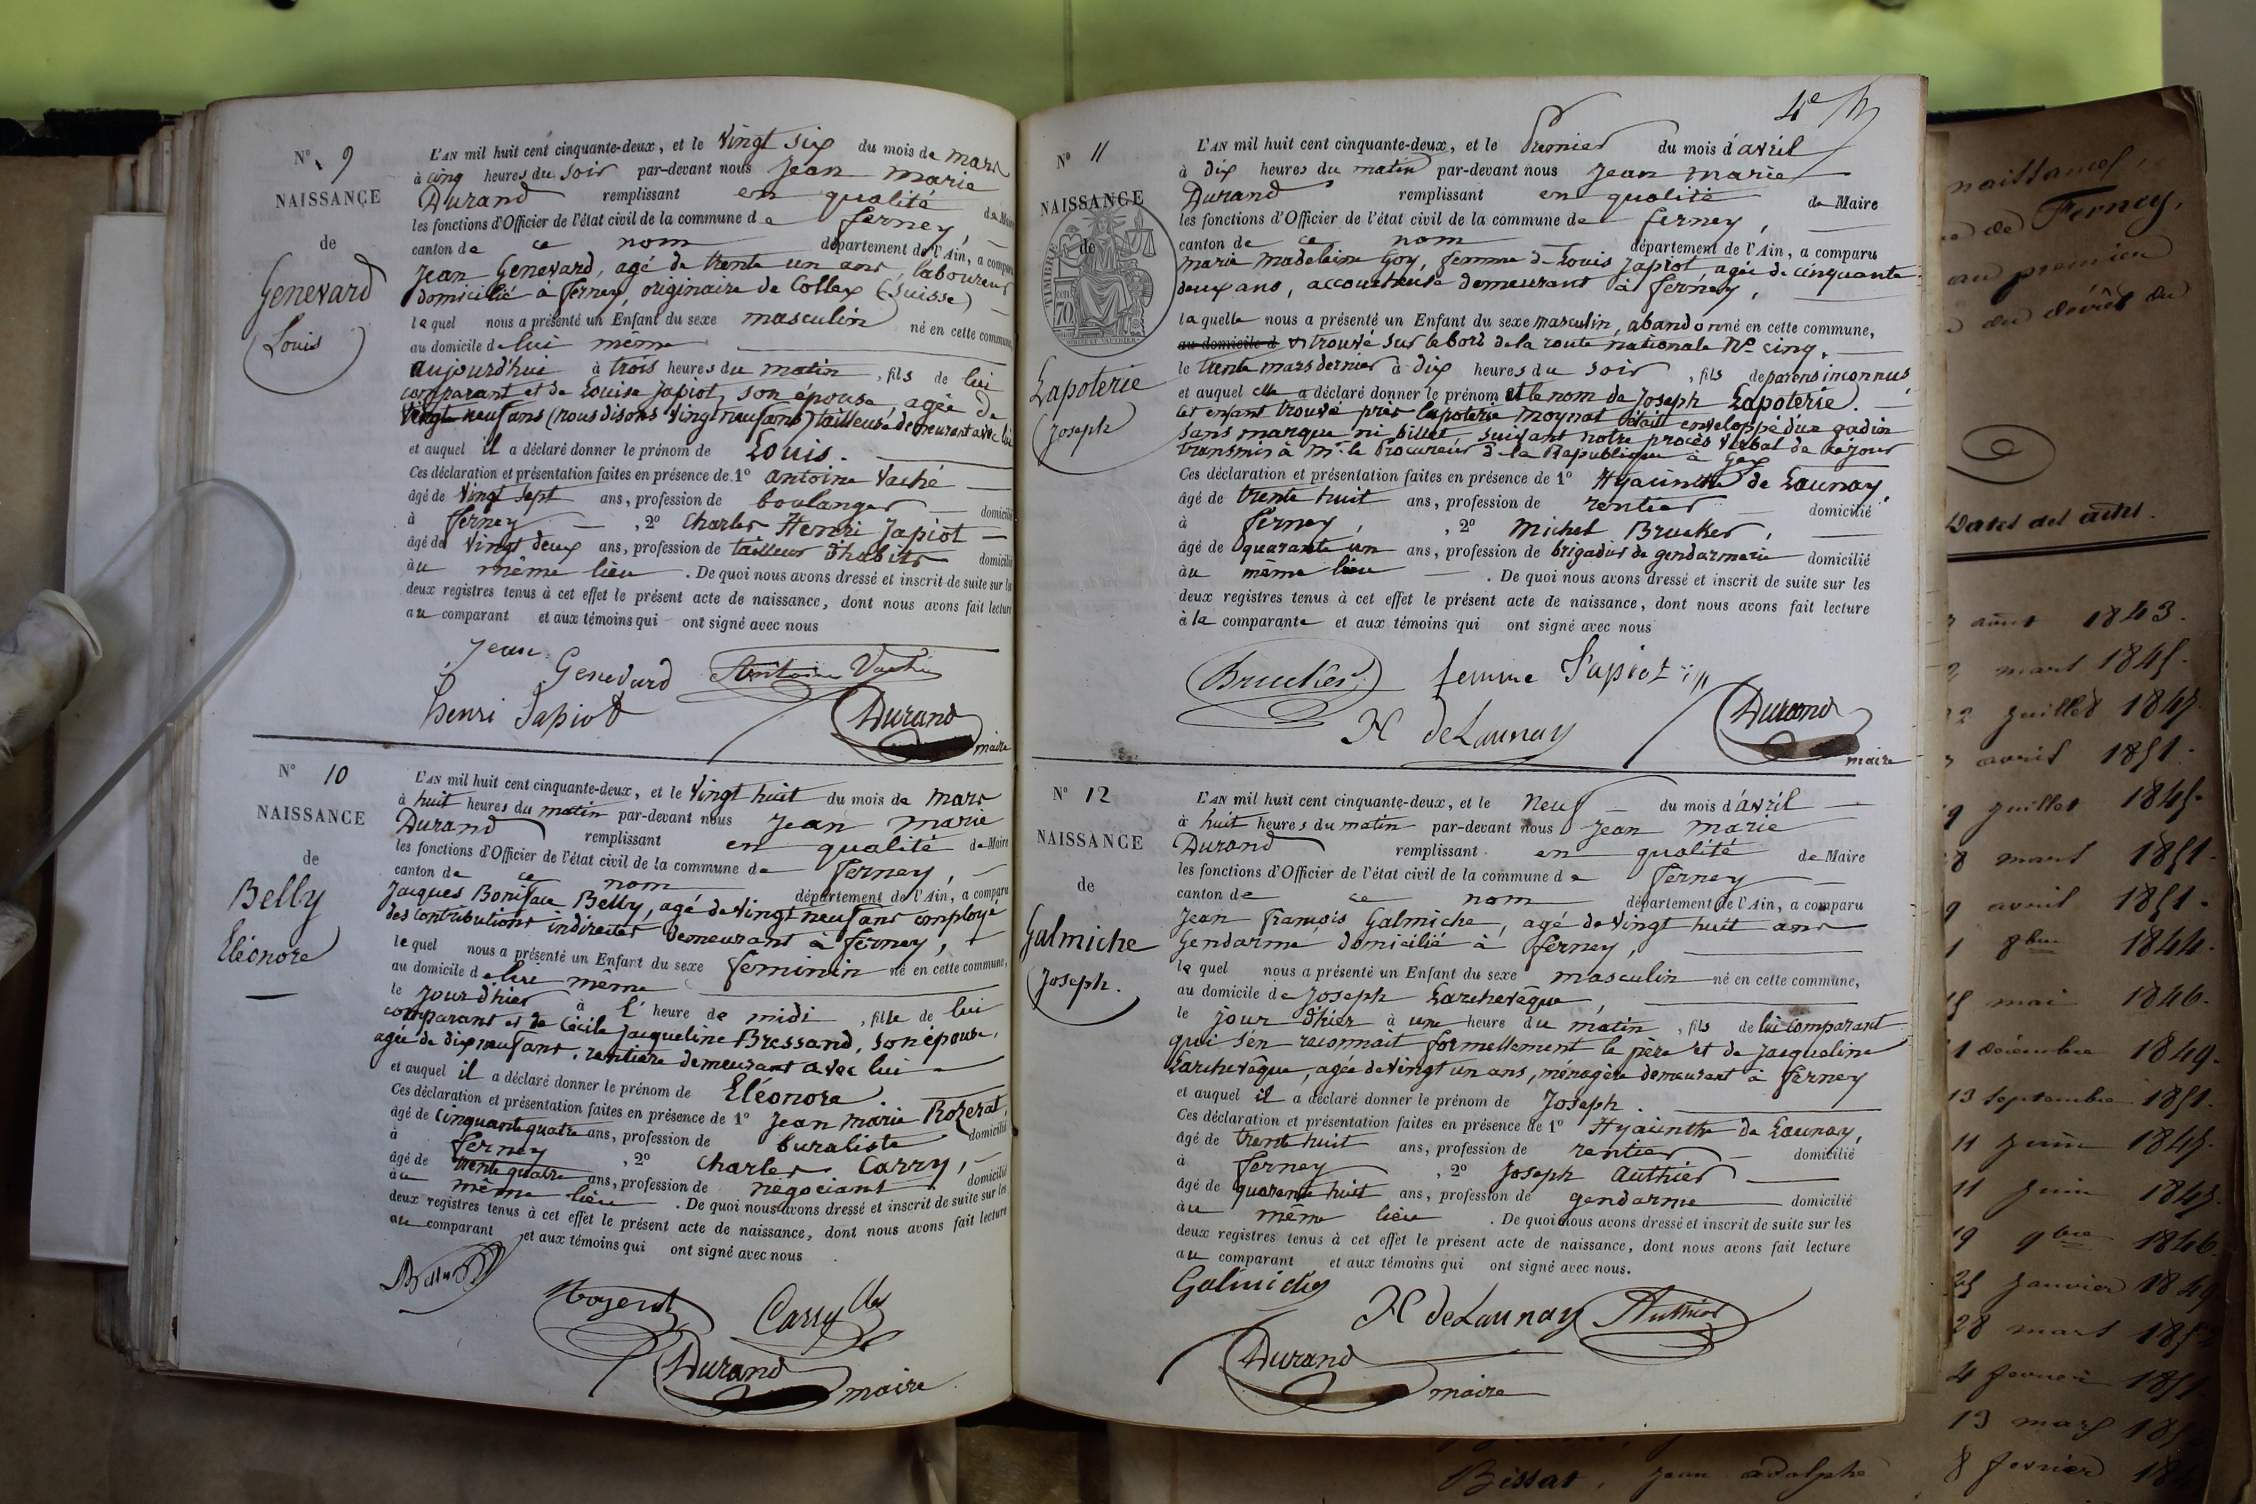 N° 9
NAISSANCE
de
Genevard
Louis
L'AN mil huit cent cinquante-deux, et le vingt six du mois de mars
à cinq heures du soir par-devant nous Jean marie
Durand remplissant en qualité de Maire
les fonctions d'Officier de l'état civil de la commune de ferney,
canton de ce nom département de l'Ain, a comparu
Jean Genevard, agé de trente un ans, laboureur
domicilié à ferney, originaire de Collex (Suisse)
lequel nous a présenté un Enfant du sexe masculin né en cette commune,
au domicile de lui même
aujourd'hui à trois heures du matin, fils de lui
comparant et de Louise Japiot, son épouse agée de
vingt neuf ans (nous disons vingt neuf ans) tailleuse demeurant avec lui
et auquel il a déclaré donner le prénom de Louis.
Ces déclaration et présentation faites en présence de 1° antoine Vaché
âgé de vingt sept ans, profession de boulanger domicilié
à ferney, 2° Charles Henri Japiot
âgé de vingt deux ans, profession de tailleur d'habits domicilié
au même lieu. De quoi nous avons dressé et inscrit de suite sur les
deux registres tenus à cet effet le présent acte de naissance, dont nous avons fait lecture
au comparant et aux témoins qui ont signé avec nous
Jean Genevard Antoine Vaché
henri Japiot Durand
maire
N° 10
NAISSANCE
de
Belly
Eléonore
L'AN mil huit cent cinquante-deux, et le vingt huit du mois de mars
à huit heures du matin par-devant nous Jean marie
Durand remplissant en qualité de Maire
les fonctions d'Officier de l'état civil de la commune de ferney,
canton de ce nom département de l'Ain, a comparu
Jacques Boniface Belly, agé de vingt neuf ans employé
des contributions indirectes demeurant à ferney,
lequel nous a présenté un Enfant du sexe feminin né en cette commune,
au domicile de lui même
le jour d'hier à l'heure de midi, fille de lui
comparant et de Cécile Jacqueline Bressand, son épouse,
agée de dix neuf ans, rentière demeurant avec lui
et auquel il a déclaré donner le prénom de Eléonore
Ces déclaration et présentation faites en présence de 1° Jean marie Rozerat,
âgé de cinquante quatre ans, profession de buraliste domicilié
à ferney, 2° Charles Carry,
âgé de trente quatre ans, profession de négociant domicilié
au même lieu. De quoi nous avons dressé et inscrit de suite sur les
deux registres tenus à cet effet le présent acte de naissance, dont nous avons fait lecture
au comparant et aux témoins qui ont signé avec nous
Carry
Durand maire
4e
N° 11
NAISSANCE
de
TIMBRE
70
Lapoterie
Joseph
L'AN mil huit cent cinquante-deux, et le Premier du mois d'avril
à dix heures du matin par-devant nous Jean marie
Durand remplissant en qualité de Maire
les fonctions d'Officier de l'état civil de la commune de ferney,
canton de ce nom département de l'Ain, a comparu
marie madeleine Goy, femme de Louis Japiot, agée de cinquante
deux ans, accoucheuse demeurant à ferney,
laquelle nous a présenté un Enfant du sexe masculin, abandonné en cette commune,
au domicile d trouvé sur le bord de la route nationale N° cinq,
le trente mars dernier à dix heures du soir, fils de parens inconnus
et auquel elle a déclaré donner le prénom et le nom de Joseph Lapoterie.
Cet enfant trouvé près lapoterie moynat était enveloppé d'un gadin
sans marque ni billet, suivant notre procès verbal de ce jour
transmis à Mr. le Procureur de la République à Gex
Ces déclaration et présentation faites en présence de 1° Hyacinthe de Launay,
âgé de trente huit ans, profession de rentier domicilié
à ferney, 2° Michel Brucker,
âgé de quarante un ans, profession de brigadier de gendarmerie domicilié
au même lieu. De quoi nous avons dressé et inscrit de suite sur les
deux registres tenus à cet effet le présent acte de naissance, dont nous avons fait lecture
à la comparante et aux témoins qui ont signé avec nous
Brucker femme Japiot
H deLaunay Durand
maire
N° 12
NAISSANCE
de
Galmiche
Joseph.
L'AN mil huit cent cinquante-deux, et le neuf du mois d'avril
à huit heures du matin par-devant nous Jean marie
Durand remplissant en qualité de Maire
les fonctions d'Officier de l'état civil de la commune de ferney
canton de ce nom département de l'Ain, a comparu
Jean françois Galmiche, agé de vingt huit ans
Gendarme domicilié à ferney,
lequel nous a présenté un Enfant du sexe masculin né en cette commune,
au domicile de Joseph Larchevêque,
le jour d'hier à une heure du matin, fils de lui comparant
qui s'en reconnait formellement le père et de Jacqueline
Larchevêque, agée de vingt un ans, ménagère demeurant à ferney
et auquel il a déclaré donner le prénom de Joseph.
Ces déclaration et présentation faites en présence de 1° Hyacinthe de Launay,
âgé de trent huit ans, profession de rentier domicilié
à ferney, 2° Joseph Authier
âgé de quarante huit ans, profession de gendarme domicilié
au même lieu. De quoi nous avons dressé et inscrit de suite sur les
deux registres tenus à cet effet le présent acte de naissance, dont nous avons fait lecture
au comparant et aux témoins qui ont signé avec nous.
Galmiche
H deLaunay Authier
Durand
maire
naissances,
de Ferney,
au premier
du décrêt du
Dates des actes.
août 1843.
mars 1845.
juillet 1845
avril 1851.
juillet 1845.
mars 1851.
avril 1851.
8bre 1844.
mai 1846.
décembre 1849.
13 septembre 1851.
11 juin 1845.
11 juin 1845.
19 9bre 1846.
janvier 1849
28 mars 1852
4 février 1851
13 mars
Bissat, jean adolphe 8 fevrier